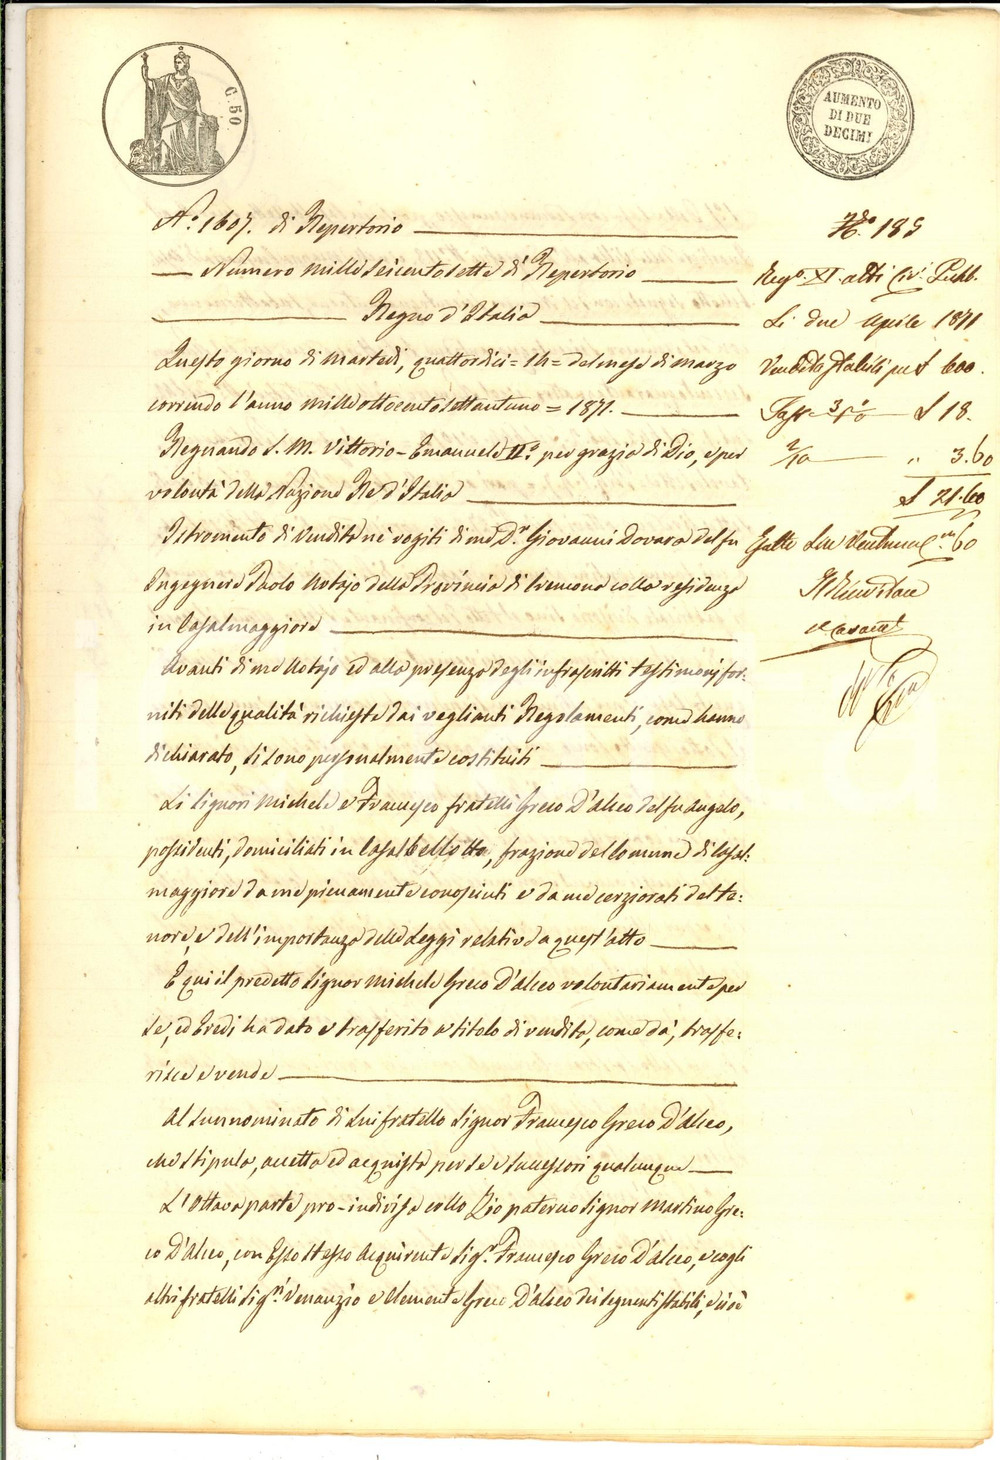 C. 50
AUMENTO
DI DUE
DECIMI
N.° 1607. di Repertorio
Numero mille seicento sette di Repertorio
Regno d'Italia
Questo giorno di martedì, quattordici = 14 = del mese di marzo
correndo l'anno mille ottocento settantuno = 1871.
Regnando S. M. Vittorio-Emanuele II.° per grazia di Dio, e per
volontà della Nazione Re d'Italia
Istromento di Vendita nei rogiti di me D.r Giovanni Dovara del fu
Ingegnere Paolo Notajo della Provincia di Cremona colla residenza
in Casalmaggiore
Avanti di me Notajo ed alla presenza degli infrascritti testimonj for-
niti delle qualità richieste dai veglianti Regolamenti, come hanno
dichiarato, si sono personalmente costituiti
Li Signori Michele e Francesco fratelli Greco D'alceo del fu Angelo,
possidenti, domiciliati in Casalbellotto, frazione del Comune di Casal:
maggiore da me pienamente conosciuti e da me cerziorati del te:
nore, e dell'importanza delle Leggi relative a quest'atto
E qui il predetto Signor Michele Greco D'alceo volontariamente per
se, ed Eredi ha dato e trasferito a titolo di vendita, come dà, trasfe:
risce e vende
Al sunnominato di Lui fratello Signor Francesco Greco D'alceo,
che stipula, accetta ed acquista per se e successori qualunque
L'Ottava parte pro-indivisa collo Zio paterno Signor Martino Gre:
co D'alceo, con Esso stesso Acquirente Sig.r Francesco Greco D'alceo, e cogli
altri fratelli Sig.ri Venanzio e Clemente Greco D'alceo dei seguenti stabili, e cioè
N.° 185
Reg.° XI. atti Civ.i Pubb.
Li due Aprile 1871
Vendita stabili per £ 600.
Tass 3 % £ 18.
2/10 " 3.60
£ 21.60
60
Il Ricevitore